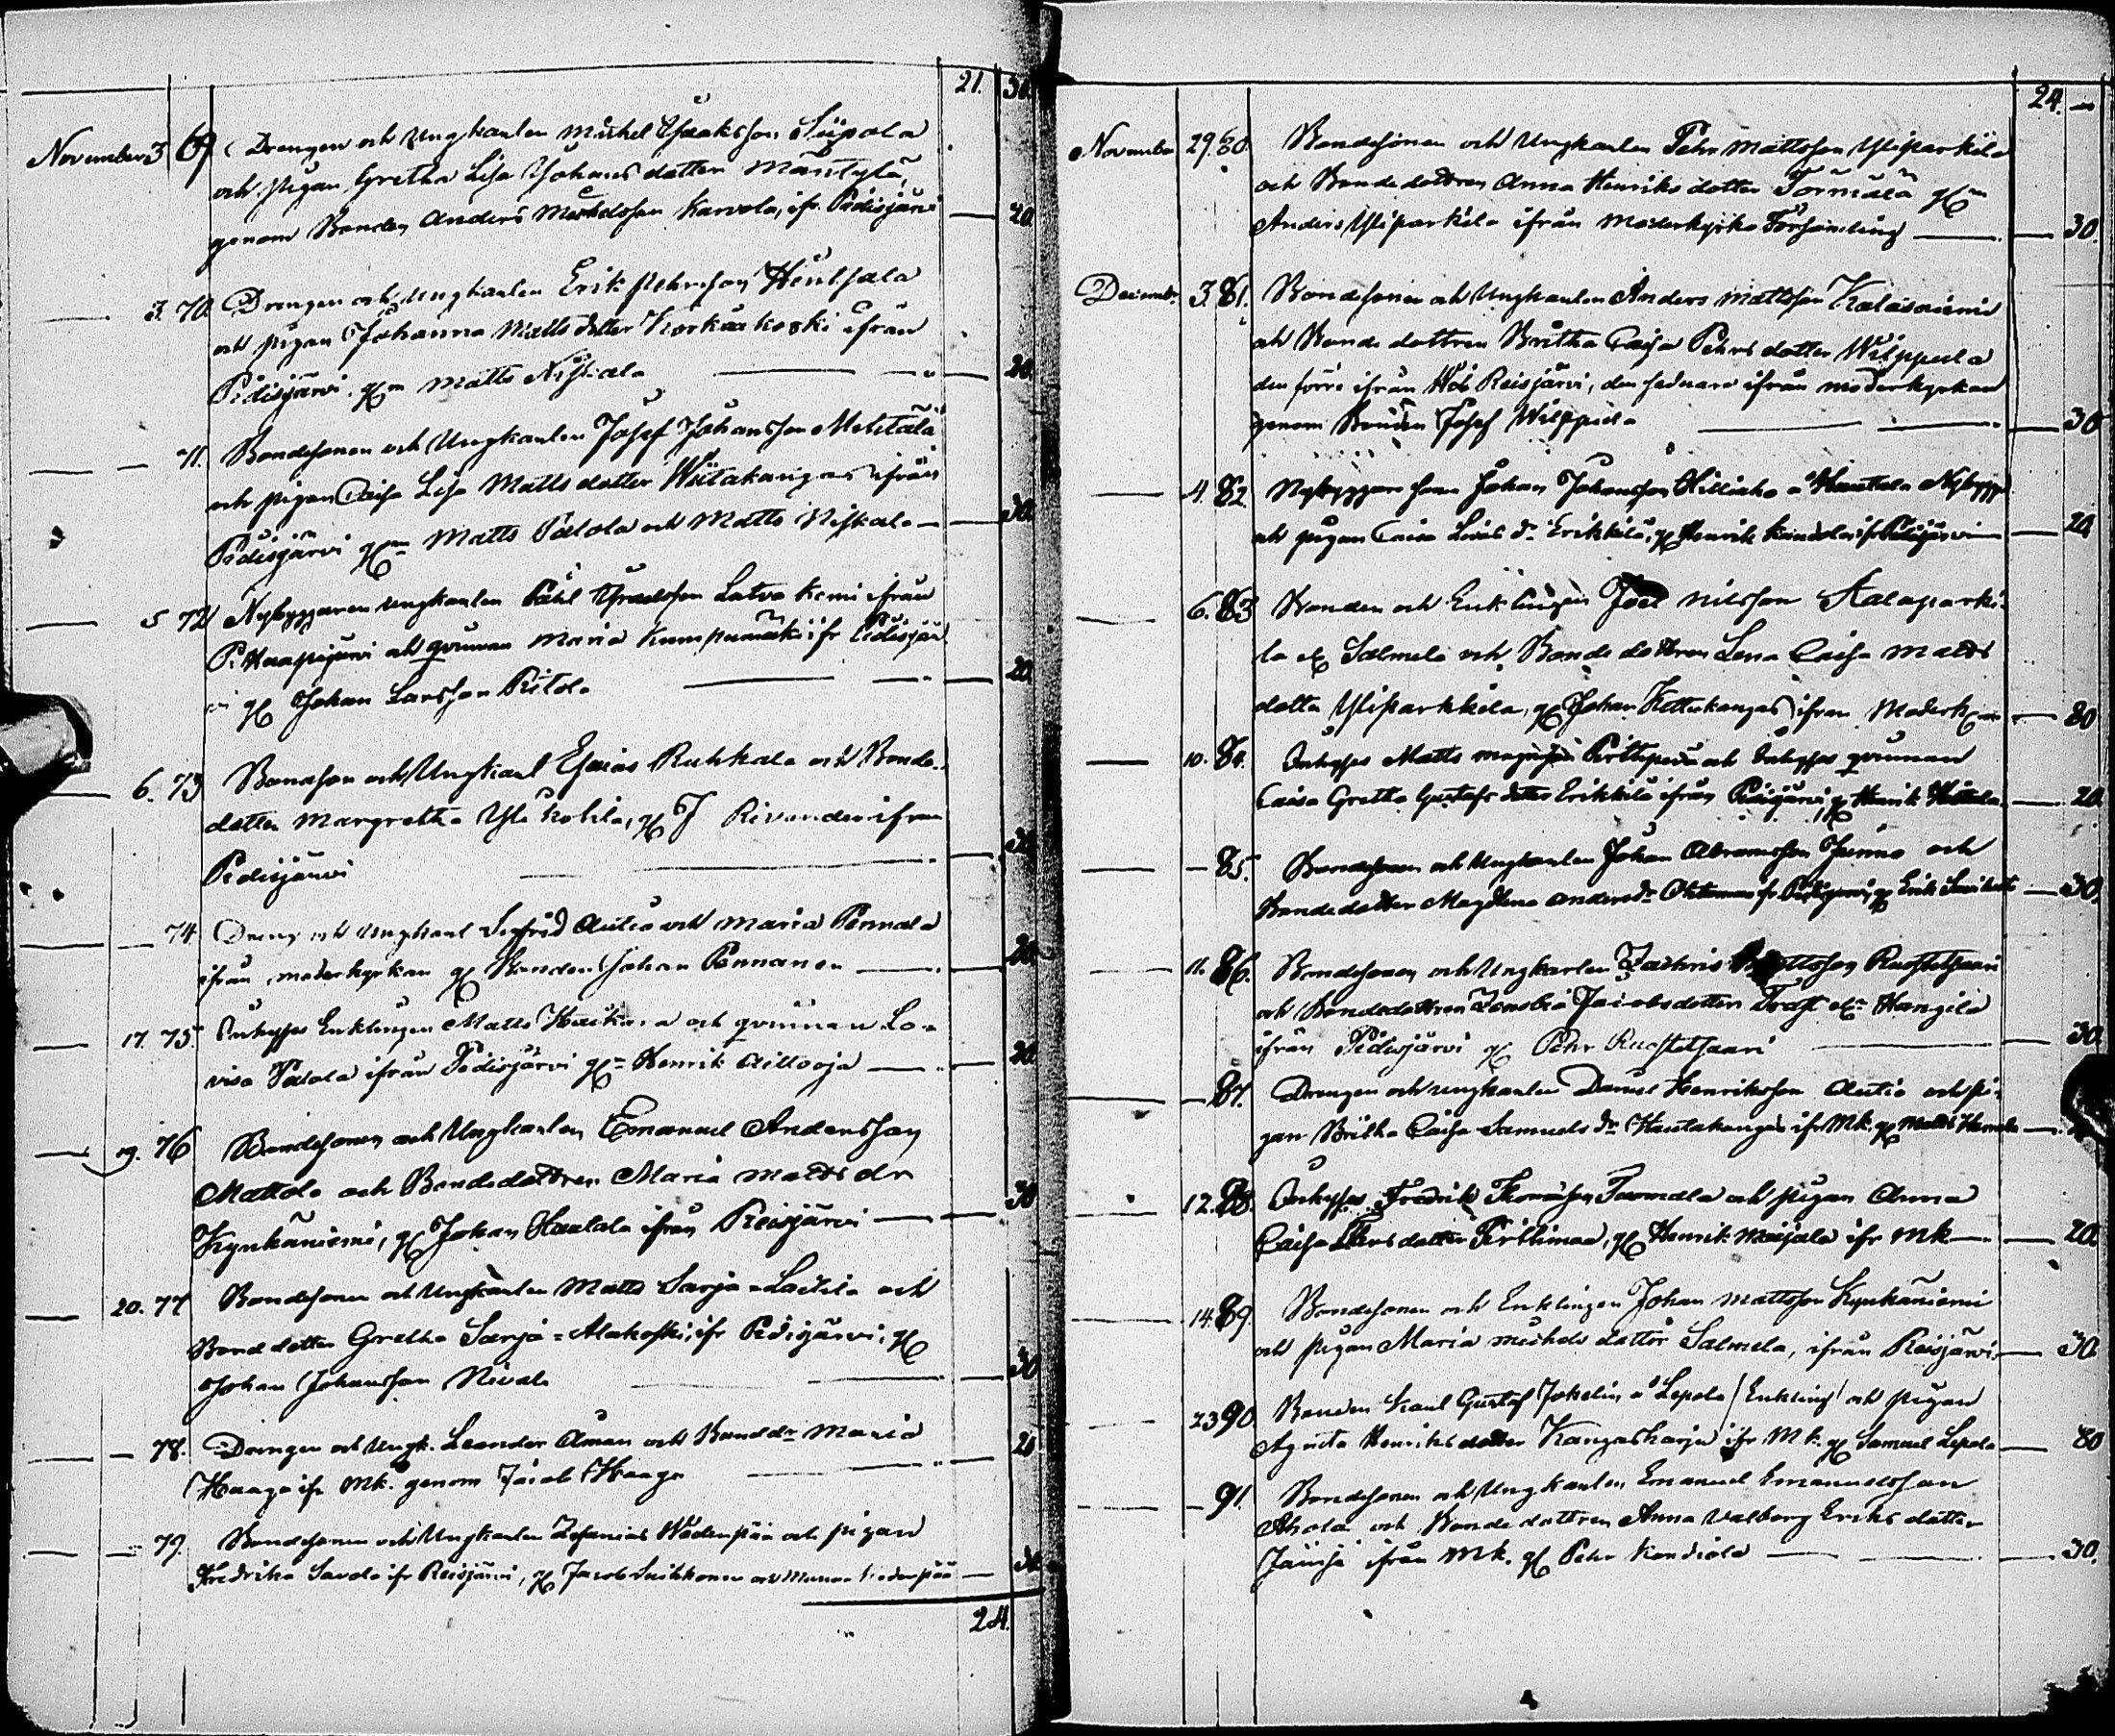 21. 30.
November 3 69 Drengen och Ungkarlen Michel Isaksson Siipola
och pigan Gretha Lisa Johansdotter Mäntylä,
genom Bonden Anders Michelsson Karvola, ifr. Pidisjärvi — 20.
3. 70. Drengen och Ungkarlen Erik Pehrsson Hentsala
och pigan Johanna Mattsdotter Korkiakoski ifrån
Pidisjärvi, gm Matts Niskala — 20.
— 71. Bondesonen och Ungkarlen Josef Johansson Mehtälä
och pigan Caisa Lisa Mattsdotter Wiitakangas ifrån
Pidisjärvi gm Matts Palola och Matts Niskala — 30.
5 72 Nybyggaren Ungkarlen Påhl Latva Kemi ifrån
P. Haapajärvi och qvinnan Maria Kumpumäki ifr Pidisjär
vi g Johan Larsson Pitola — 20.
6. 73 Bondeson och Ungkarl Esaias Ruhkala och Bonde-
dotter Margretha Yli Kotila, g J Rivander ifrån
Pidisjärvi — 30
— 74. Dreng och Ungkarl Sigfrid Autio och Maria Pennala
ifrån moderkyrkan g Bonden Johan Pennanen — 20.
17. 75. Inhyses Enklingen Matts Haikara och qvinnan Lo-
visa Palola ifrån Pidisjärvi gm Henrik Aittooja — 20.
19. 76 Bondesonen och Ungkarlen Emanuel Andersson
Mattola och Bondedottren Maria Matts dr
Kynkäniemi, g Johan Hautala ifrån Reisjärvi — 30
20. 77 Bondesonen och Ungkarlen Matts Sarja-Laitila och
Bonddotter Gretha Sarja=Alakoski, ifr Pidisjärvi, g
Johan Johansson Nivala — 30
— 78. Drengen och Ungk. Leander Åman och Bonddr Maria
Haaga ifr Mk. genom Jacob Haaga — 20
— 79. Bondesonen och Ungkarlen Zefanias Wedenpää och pigan
Fredrika Savola ifr Reisjärvi, g Jacob Suikkonen och — 30.
24.
24. —
November 29. 80. Bondesonen och Ungkarlen Pehr Mattsson Yliparkila
och Bondedottren Anna Henriksdotter Törmälä gm
Anders Yliparkila ifrån Moderkyrko Församling — 30.
December 3. 81. Bondesonen och Ungkarlen Anders Mattsson Kalasniemi
och Bondedottren Britha Caisa Pehrsdotter Wilppula
den förre ifrån Reisjärvi, den sednare ifrån moderkyrkan
genom Bonden Josef Wilppula — 30
4. 82. Nybyggare sonen Johan Johansson Hilliaho å Hautala Nybygge
och pigan Caisa Lovis dr Erikkilä, g Henrik ifr Pidisjärvi — 20
6. 83 Bonden och Enklingen Joel Nilsson Kalaparki-
la ex Salmela och Bondedottren Lena Caisa Matts
dotter Yliparkkila, g Johan Ketterkangas ifrån Moderk — 80
10. 84. Inhyses Matts Pirttiperä och Inhyses qvinnan
Caisa Gretha Gustafsdotter Erikkilä ifrån Pidisjärvi g Henrik — 20.
— 85. Bondesonen och Ungkarlen Johan Abramsson Junno och
Bondedotter Magdlena Andersdr ifr Pidisjärvi g Erik — 30.
11. 86. Bondesonen och Ungkarlen Zachris Mattsson Ruostetsaari
och Bondedottren Zenobia Jacobsdotter Trast ex Hangila
ifrån Pidisjärvi g Pehr Ruostetsaari — 30.
— 87. Drengen och Ungkarlen Daniel Henriksson Autio och pi-
gan Britha Caisa Samuels dr Hautakangas ifr Mk. g Matts —
12. 88. Inhyses Fredrik Thomasson Tuomala och pigan Anna
Caisa Pehrsdotter Pirttimaa, g Henrik Maijala ifr Mk — 20.
14. 89. Bondesonen och Enklingen Johan Mattsson Kynkäniemi
och pigan Maria Michelsdotter Salmela, ifrån Reisjärvi — 30.
23 90 Bonden Karl Gustaf Jokelin å Lepola (Enkling) och pigan
Agneta Henriksdotter Kangasharju ifr Mk. g Samuel Lepola — 80
— 91. Bondesonen och Ungkarlen Emanuel Emanuelsson
Ahola och Bondedottren Anna Valborg Eriksdotter
Junja ifrån Mk. g Pehr Kandiola — 30.